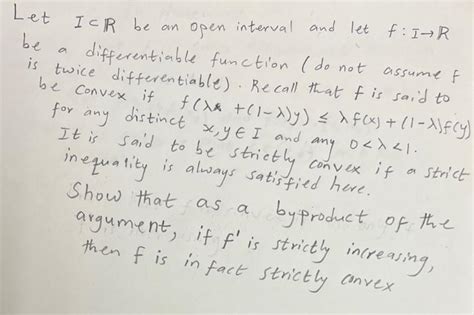 Let I⊂ℝ be an open interval and let f: I→ℝ
be a differentiable function (do not assume f
is twice differentiable). Recall that f is said to
be convex if f(λx +(1-λ)y) ≤ λf(x)+(1-λ)f(y)
for any distinct x,y∈I and any 0<λ<1.
It is said to be strictly convex if a strict
inequality is always satisfied here.
Show that as a byproduct of the
argument, if f' is strictly increasing,
then f is in fact strictly convex